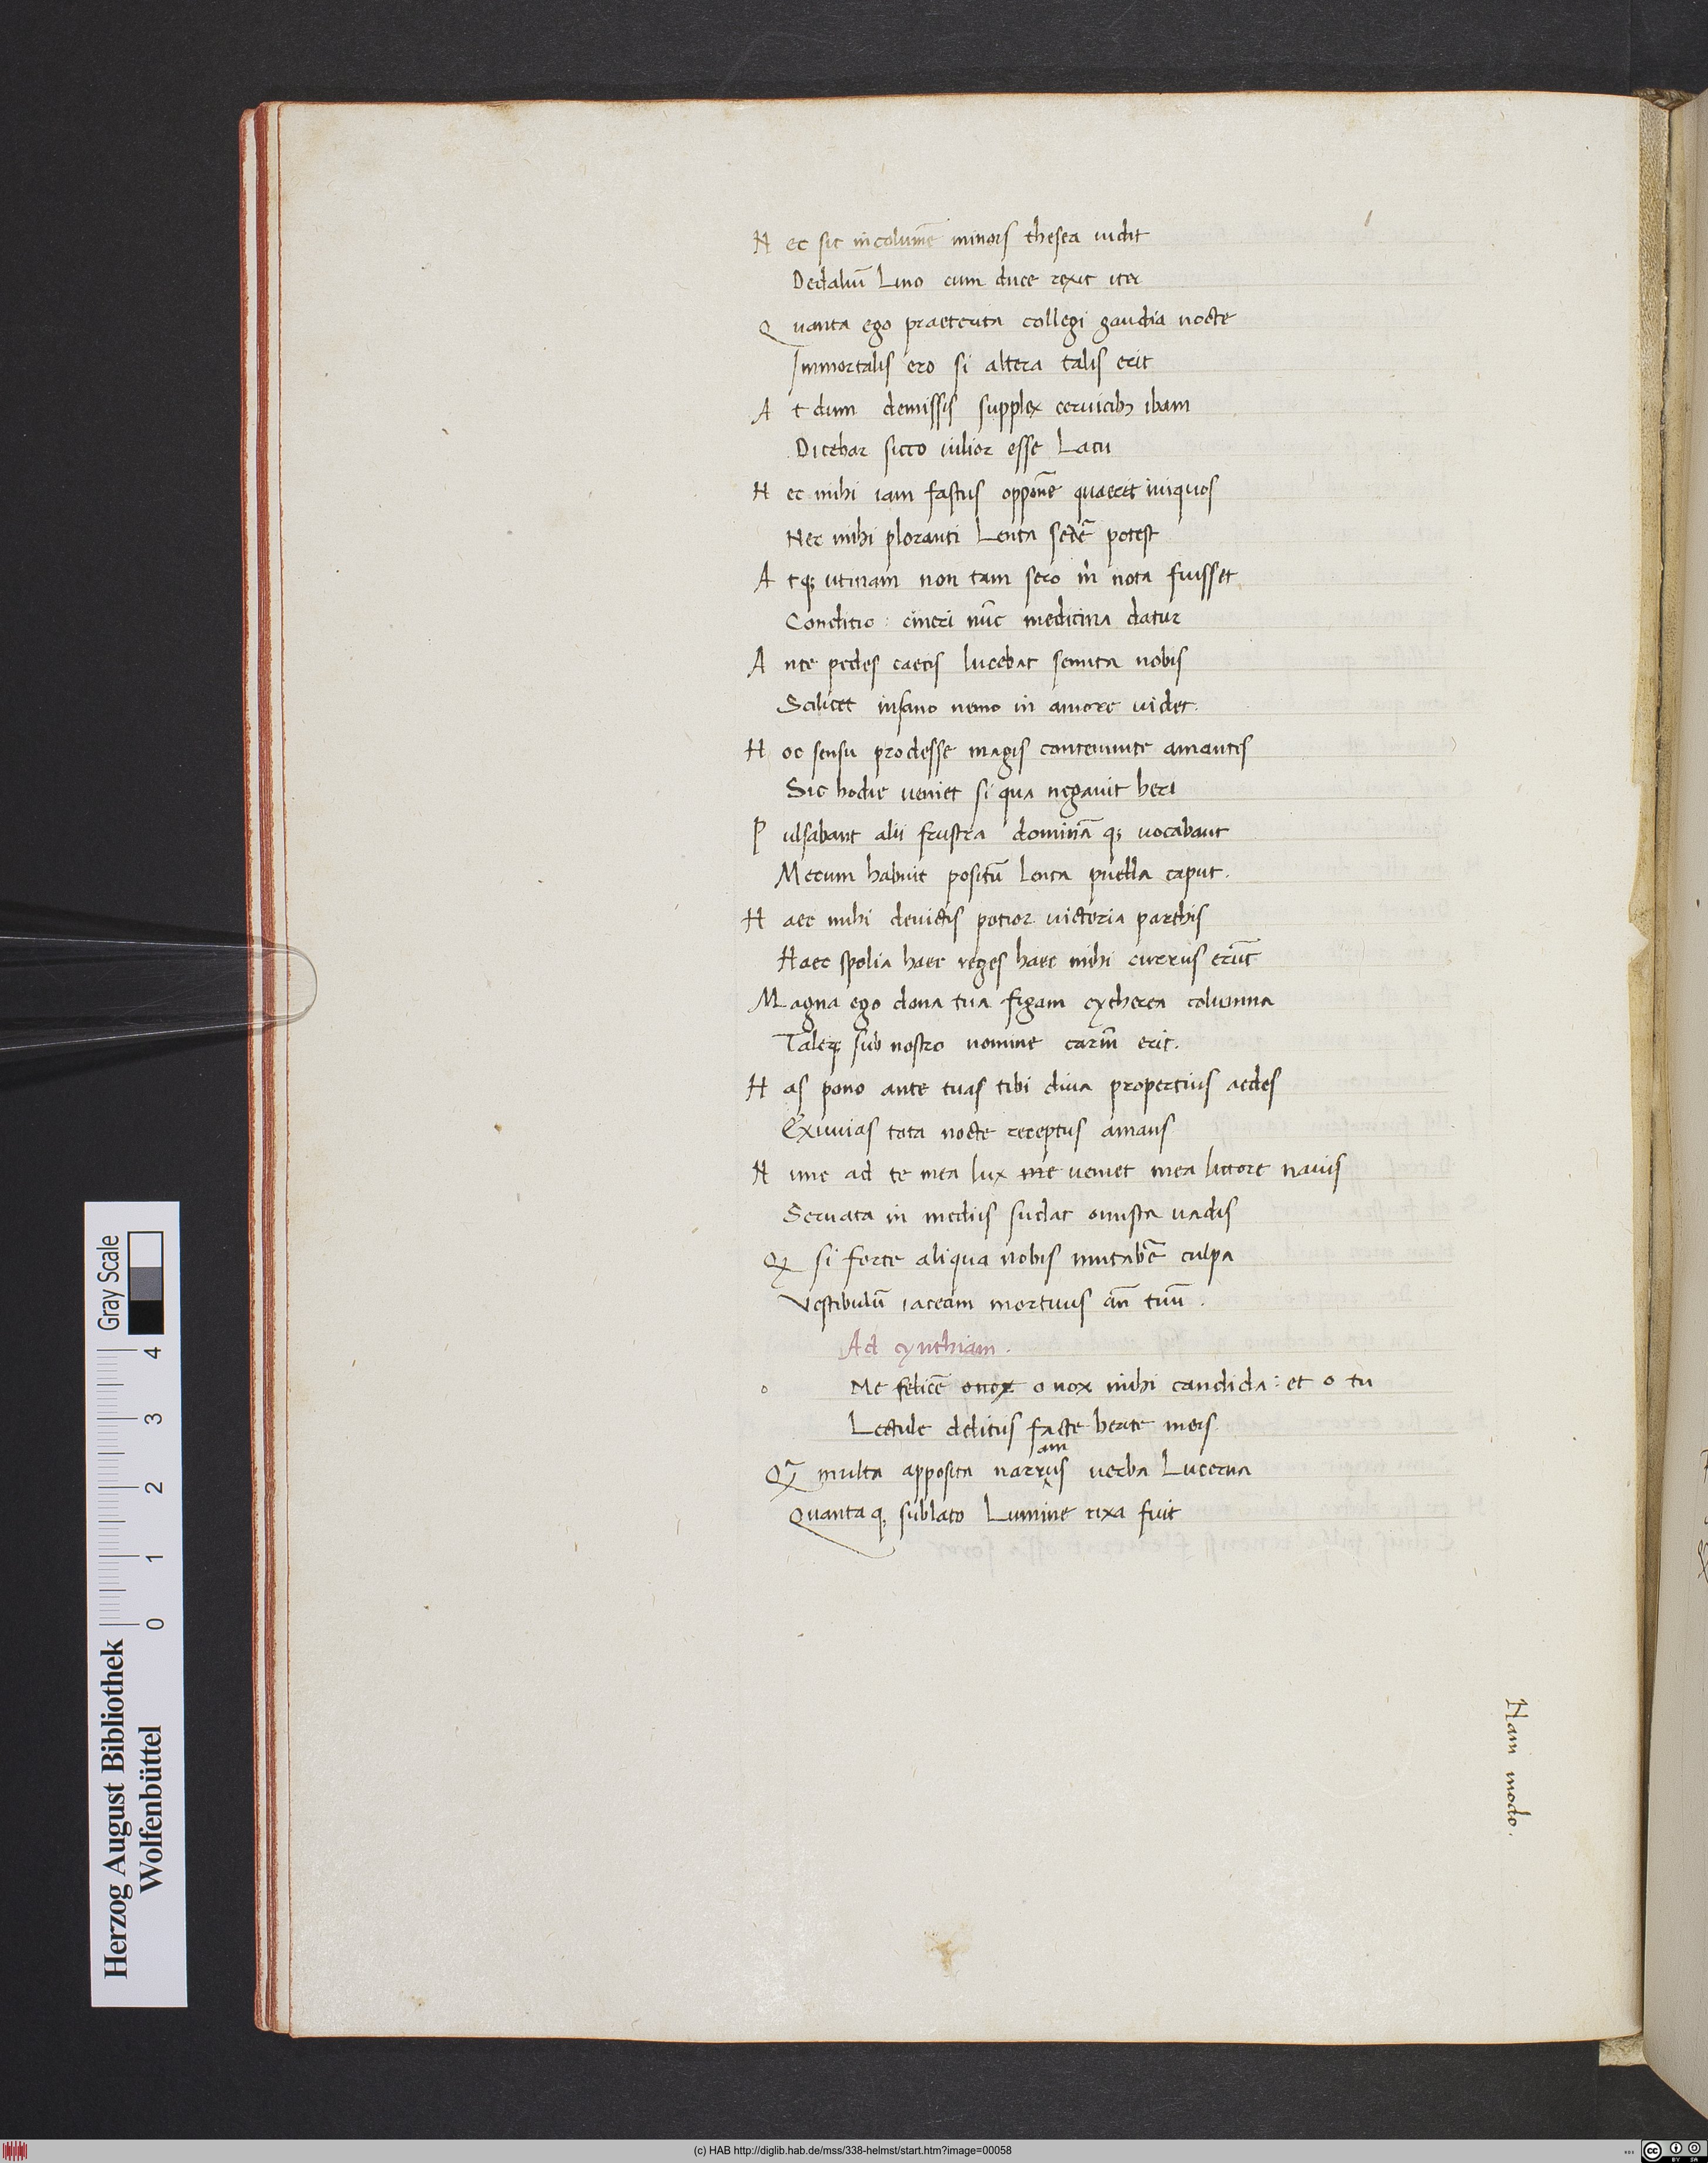 N ec sic incolumē minois thesea uidit
Dedaliū Lino cum duce rexit iter
Q uanta ego praeterita collegi gaudia nocte
Immortalis ero si altera talis erit
A t dum demissis supplex ceruicibꝫ ibam
Dicebar sicco uilior esse Lacu
N ec mihi iam fastus opponē quaerit iniquos
Nec mihi ploranti Lenta sedē potest
A tqꝫ utinam non tam sero m̄ nota fuisset
Conditio: cineri nūc medicina datur
A nte pedes caecis lucebat semita nobis
Scilicet insano nemo in amore uidet.
H oc sensu prodesse magis contemnite amantis
Sic hodie ueniet si qua negauit heri
P ulsabant alii frustra dominā qꝫ uocabant
Mecum habuit positū lenta puella caput.
H aec mihi deuictis potior uictoria parthis
Haec spolia haec reges haec mihi currus erūt
Magna ego dona tua figam cytherea columna
Taleqꝫ sub nostro nomine carm̄ erit.
H as pono ante tuas tibi diua propertius aedes
Exiuuias tota nocte receptus amans
N unc ad te mea lux me ueniet mea littore nauis
Seruata in mediis sudat onusta uadis
Q si forte aliqua nobis mutabē culpa
Vestibulū iaceam mortuus an̄ tuū.
Ad cynthiam.
o Me felicē onox o nox mihi candida: et o tu
Lectule deliciis facte beate meis
Q multa apposita narrus verba Lucerna
am
Quanta qꝫ sublato Lumine rixa fuit
Nam modo.
Herzog August Bibliothek
Wolfenbüttel
0 1 2 3 4
Gray Scale
(c) HAB http://diglib.hab.de/mss/338-helmst/start.htm?image=00058
cc
BY SA